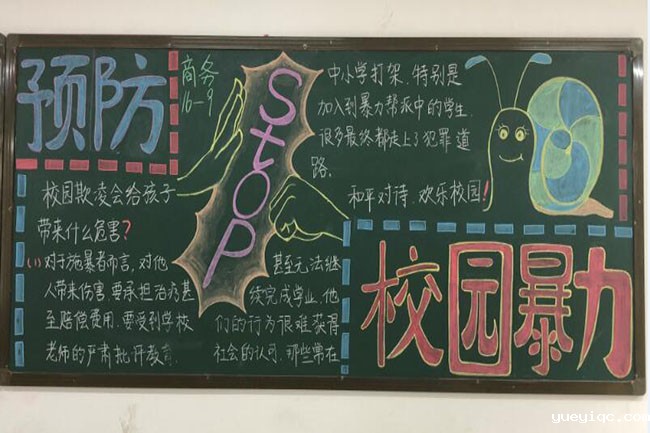 预防
商务
16-9
STOP
校园欺凌会给孩子
带来什么危害?
(1)对于施暴者而言,对他
人带来伤害,要承担治疗甚
至赔偿费用.要受到学校
老师的严肃批评教育
甚至无法继
续完成学业.他
们的行为很难获得
社会的认可.那些常在
中小学打架.特别是
加入到暴力帮派中的学生.
很多最终都走上了犯罪道
路.
和平对待.欢乐校园!
校园暴力
yueyiqc.com